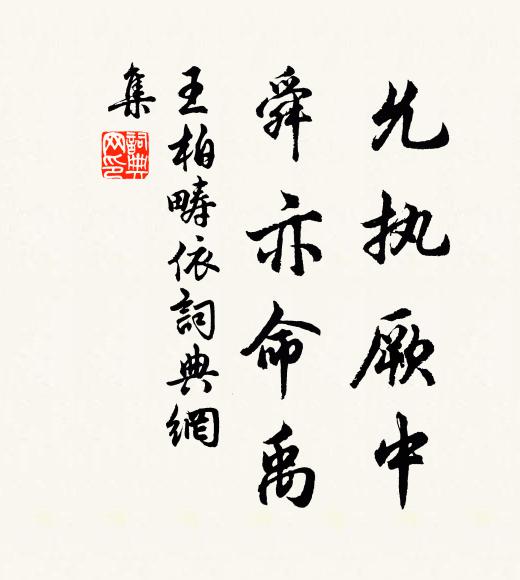 允执厥中
舜亦命禹
王柏畴依詞典網
集
詞典
网印